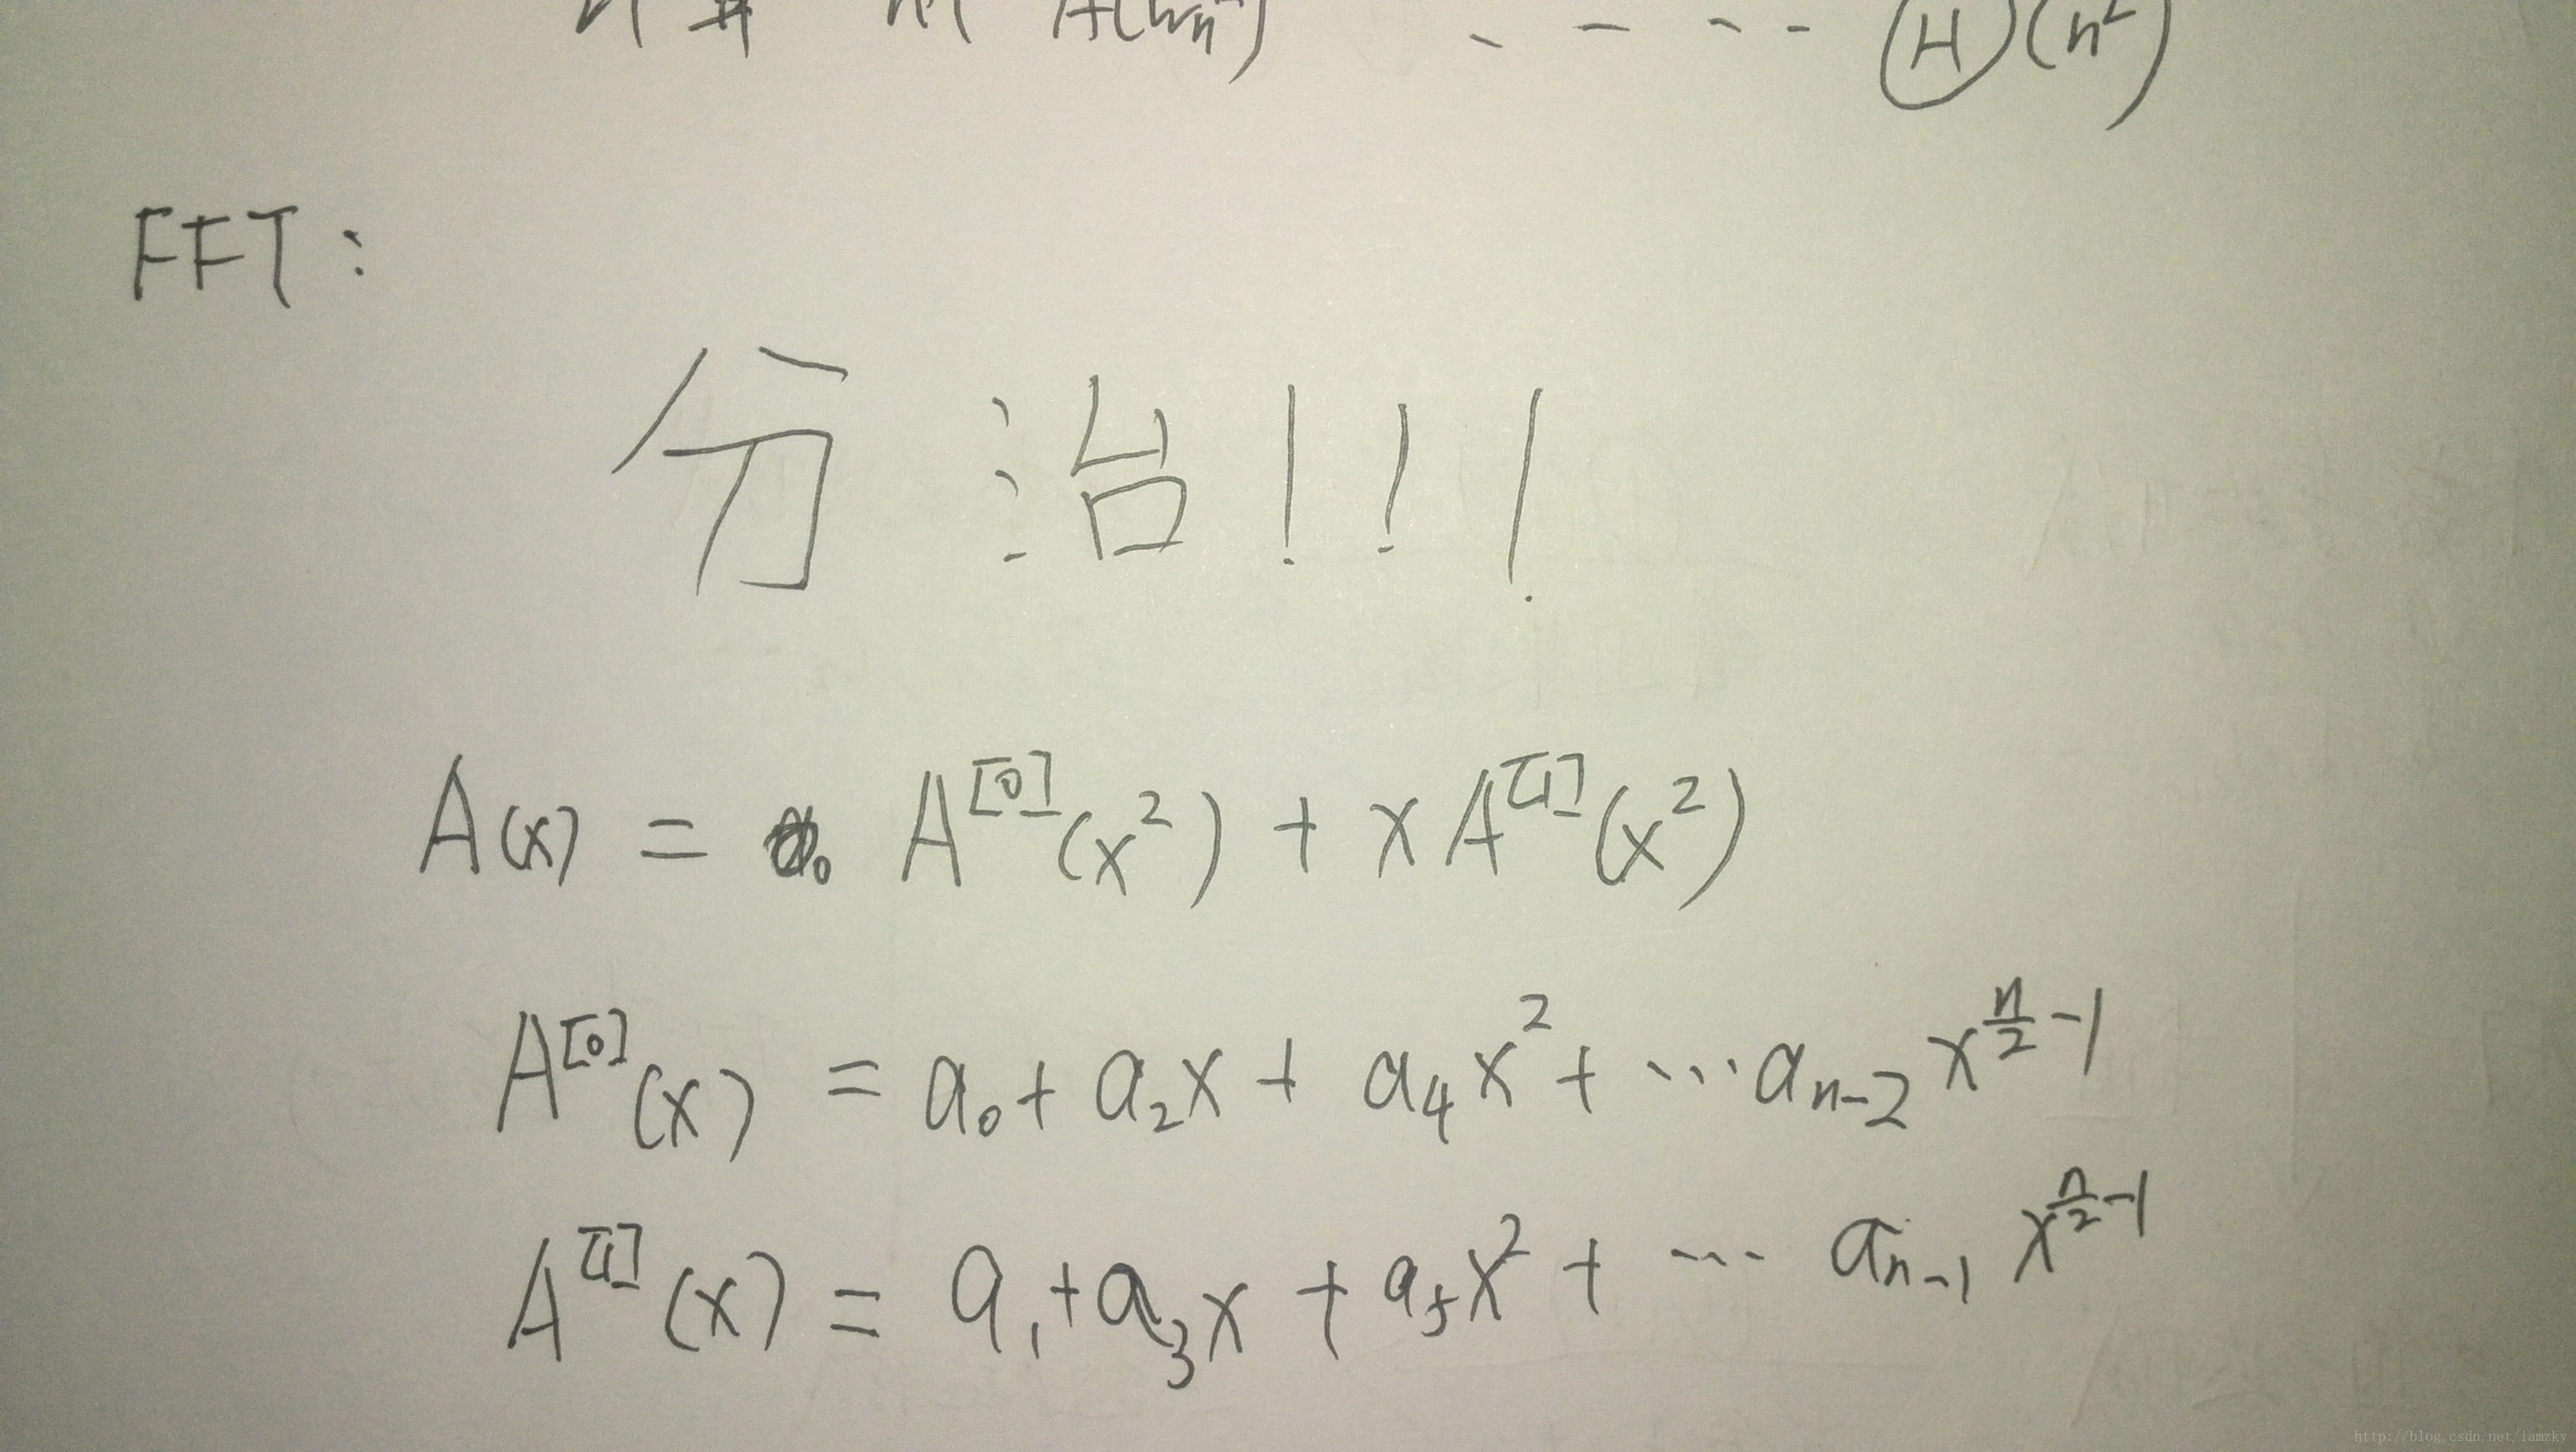 A(ωn) - - - - Θ(n²)
FFT:
分治!!!
A(x) = A^[0](x²) + xA^[1](x²)
A^[0](x) = a₀ + a₂x + a₄x² + ⋯ aₙ₋₂ x^(n/2 -1)
A^[1](x) = a₁ + a₃x + a₅x² + ⋯ aₙ₋₁ x^(n/2 -1)
http://blog.csdn.net/iamzky